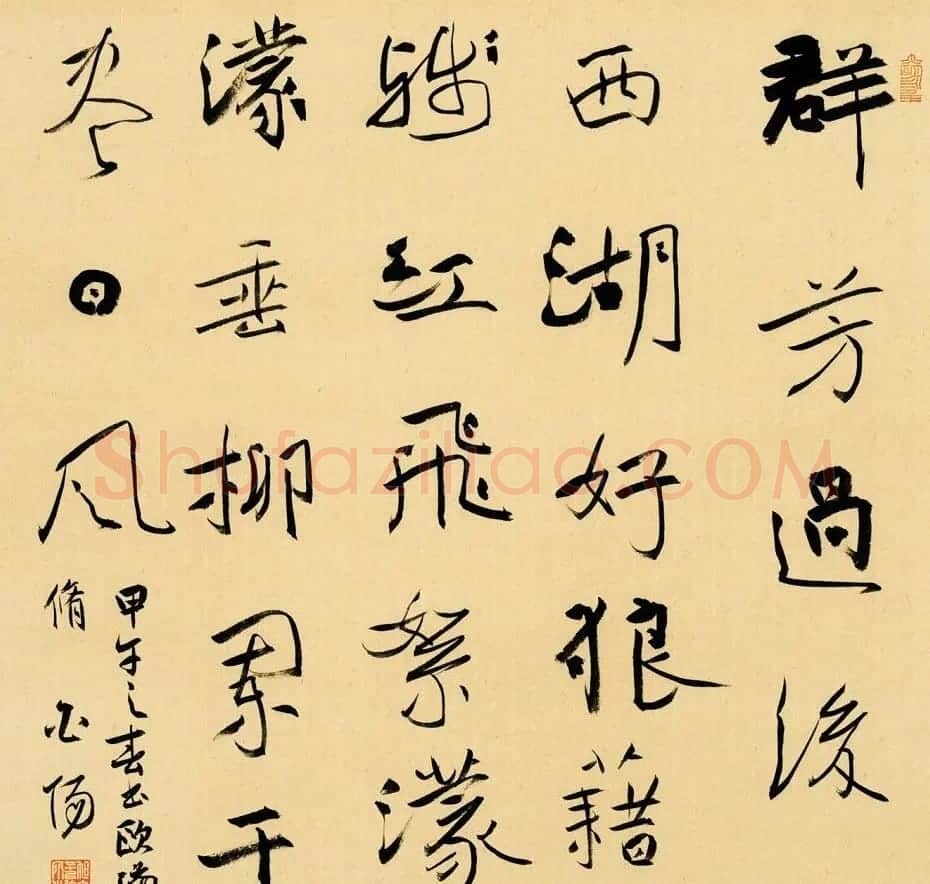 群芳過後
西湖好狼籍
殘紅飛絮濛
濛垂柳闌干
盡日風
甲午之春書歐陽
脩
Shufaziliao.COM